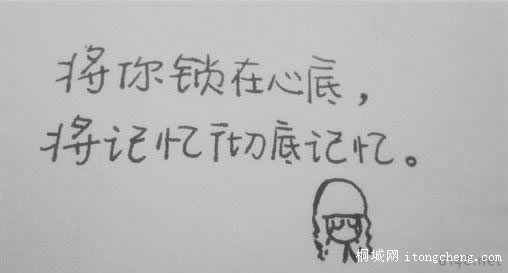 将你锁在心底，
将记忆彻底记忆。
桐城网 itongcheng.com